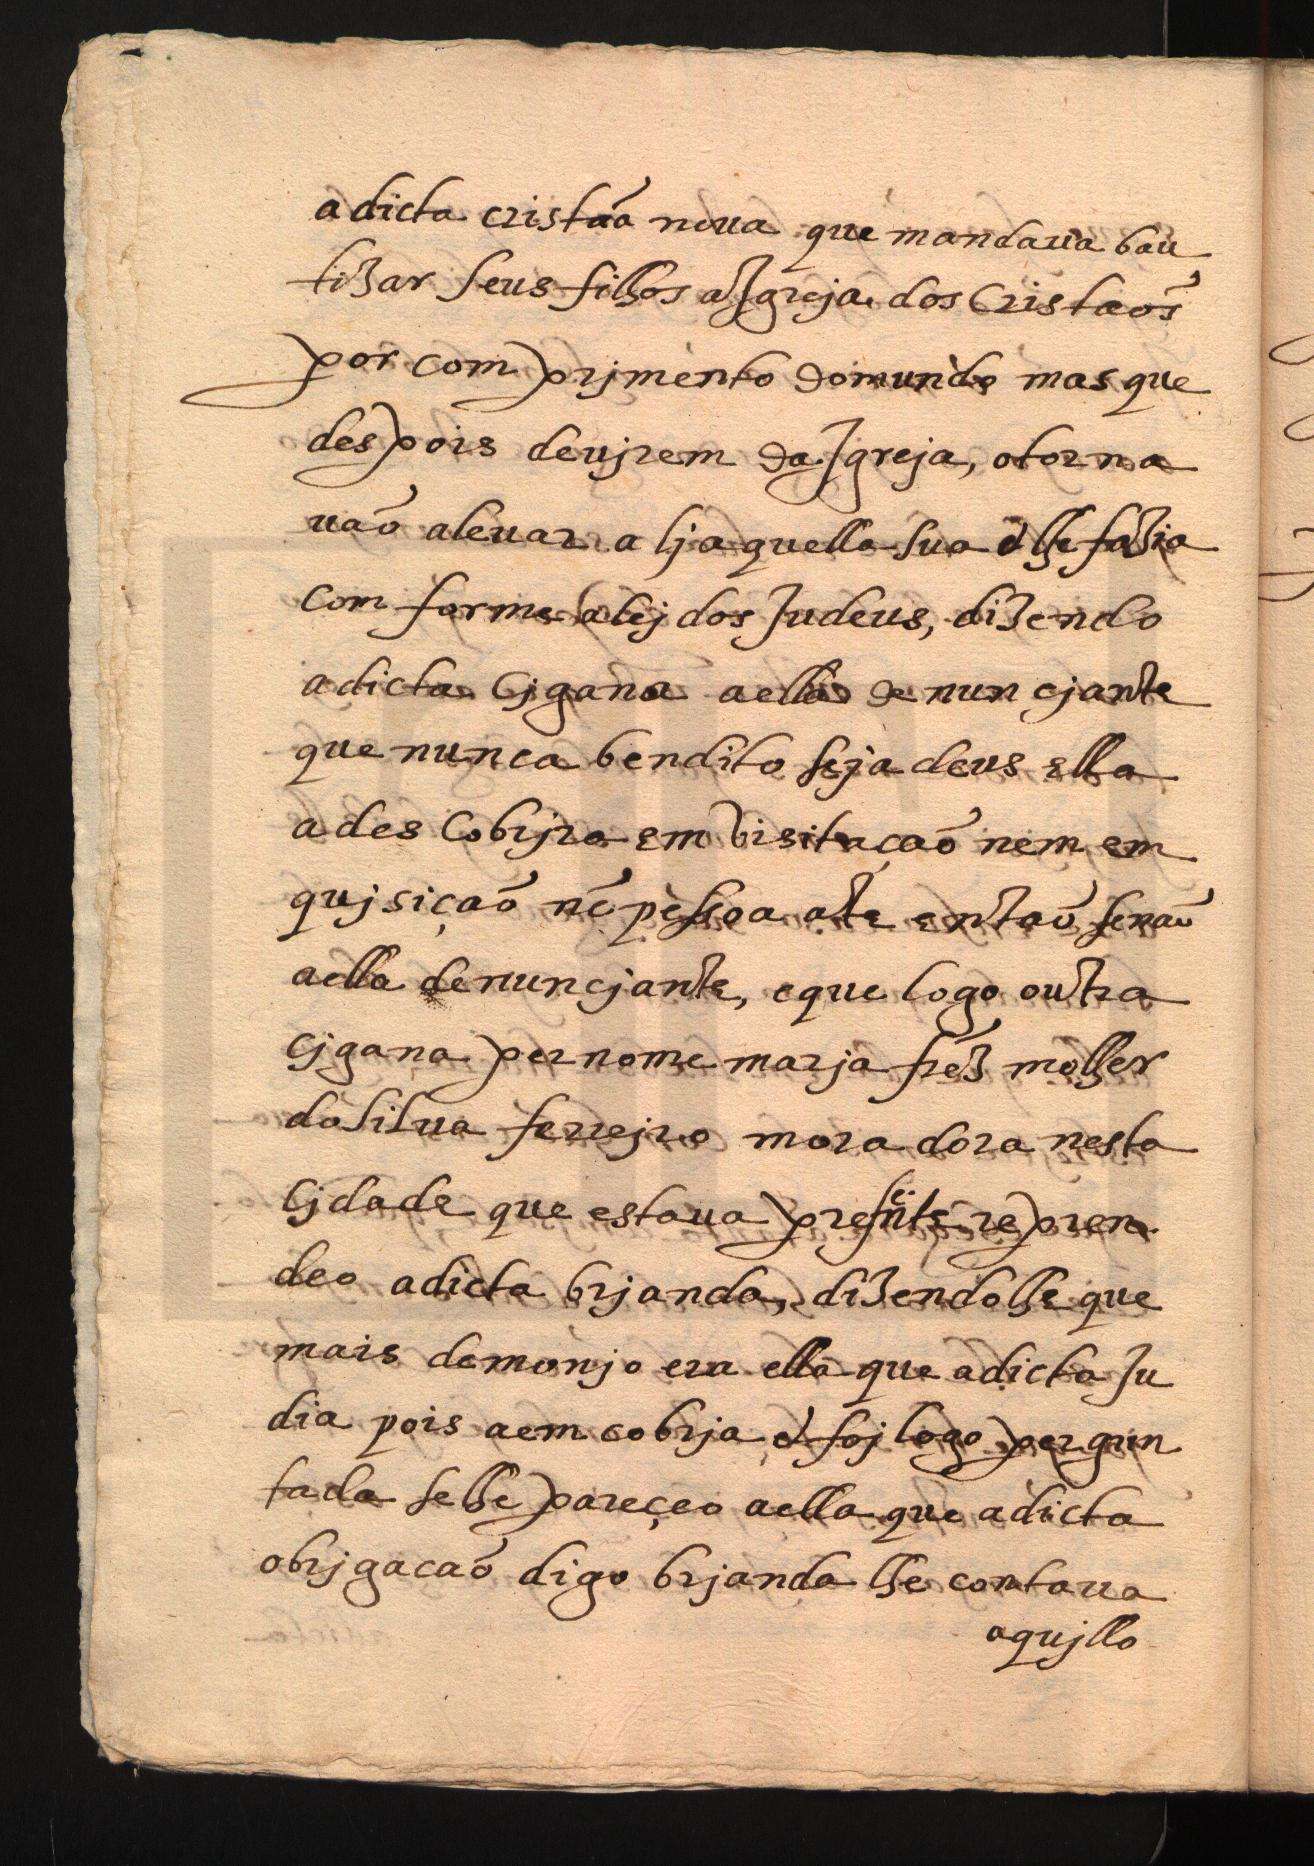 a dicta cristaã noua que mandaua bau
tizar seus filhos a Igreja dos Cristaõs
por comprjmento do mundo mas que
despois de vjrem da Igreja, o torna
uaõ a leuar a lj aquella sua & lhe fazia
com forme a lej dos Judeus, dizendo
a dicta Cjgana a ella denuncjante
que nunca bendito seja deus ella
a des Cobrjra em visitaçaõ nem em
qujsiçaõ nẽ pessoa ate entaõ senaõ
a ella denuncjante, e que logo outra
Cjgana per nome marja frẽz molher
do silua ferrejro moradora nesta
Cjdade que estaua presente repren
deo a dicta brjanda, dizendolhe que
mais demonjo era ella que a dicta Ju
dia pois a em cobrja & foj logo pergun
tada se lhe pareçeo a ella que a dicta
obrjgacaõ digo brjanda lhe contaua
aqujllo